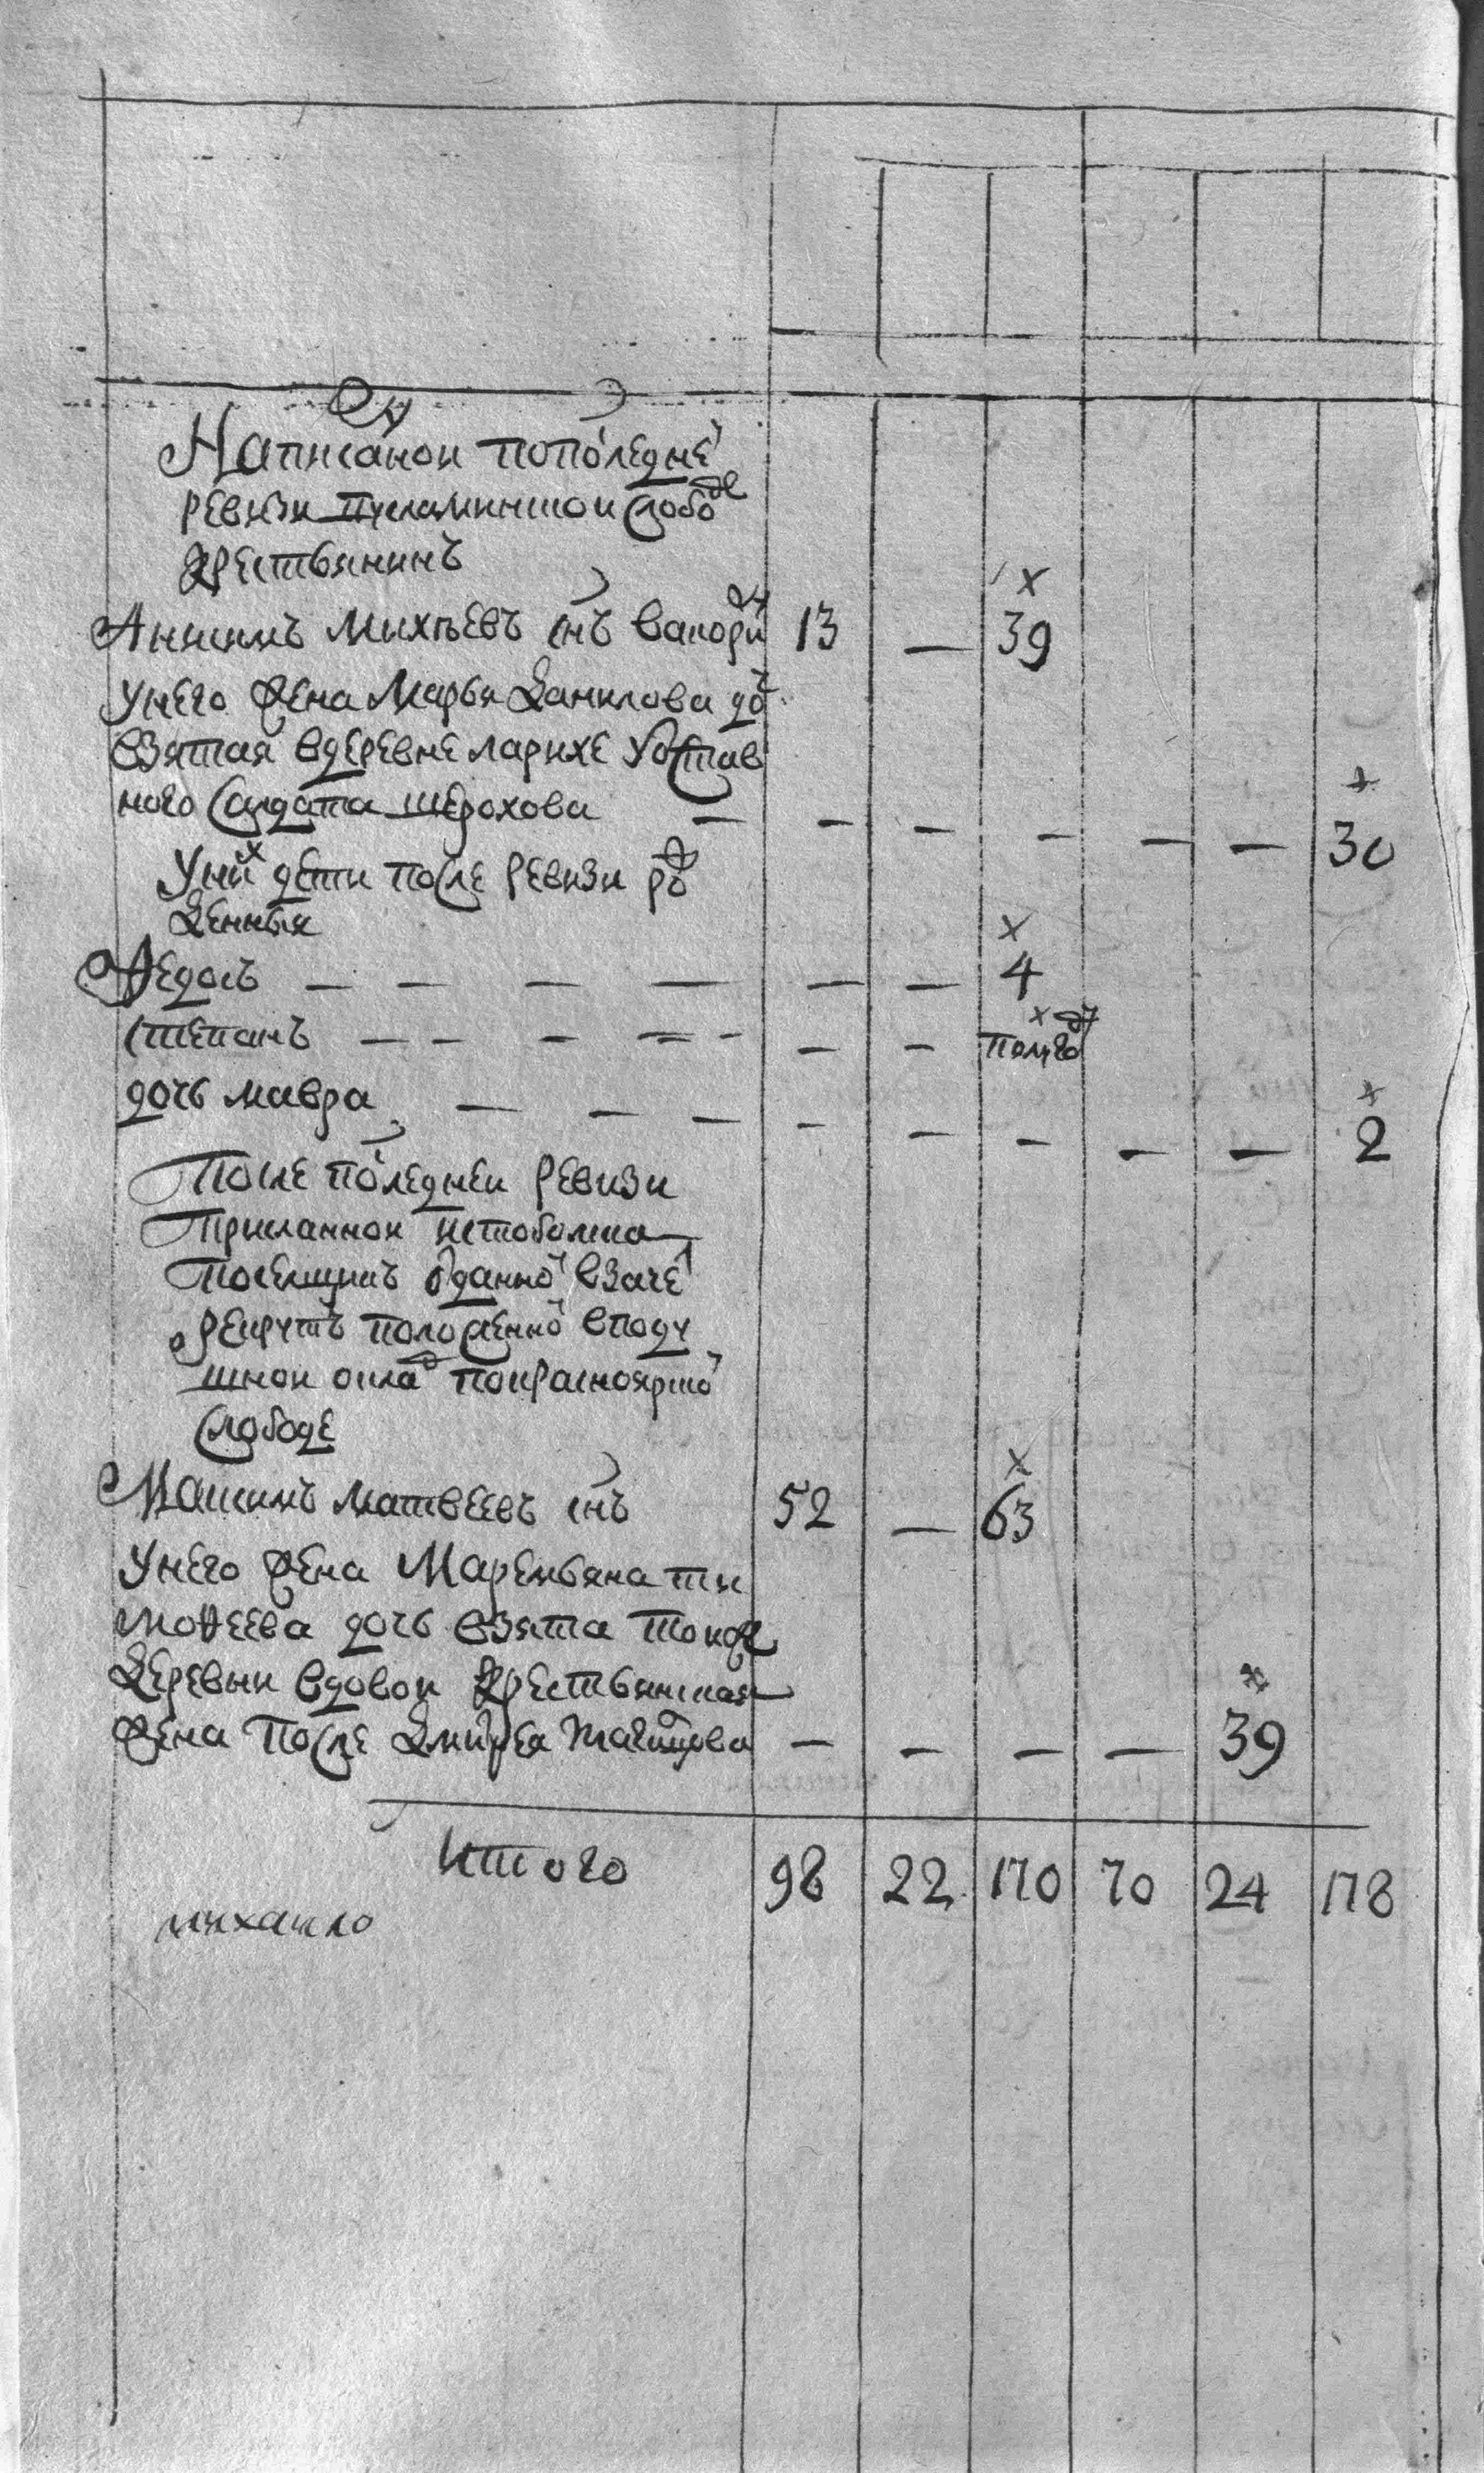 Написанои попоследнеи
ревизи пышминскои слободе
крестьянинъ
Анисимъ Михѣевъ снъ 13 — 39
Унего жена Марья Данилова дочь
взятая вдеревне ларихе Уотстав
ного Салдата шерохова — — — — — — 30
Уних дети после ревизи рож
денныя
Ѳедосъ — — — — — — 4
степанъ — — — — — — полугоду
дочь мавра — — — — — — — — 2
После последнеи ревизи
Присланнои истоболска
Посельщикъ отданной взачет
рекрутъ положенной вподу
шнои оклад покрасноярской
слободе
Максимъ матвеевъ снъ 52 — 63
Унего жена Маремьяна ти
моѳеева дочь взята тои же
Деревни вдовои крестьянская
жена После Дмитрея — — — — 39
Итого 98 22 170 70 24 178
михаило